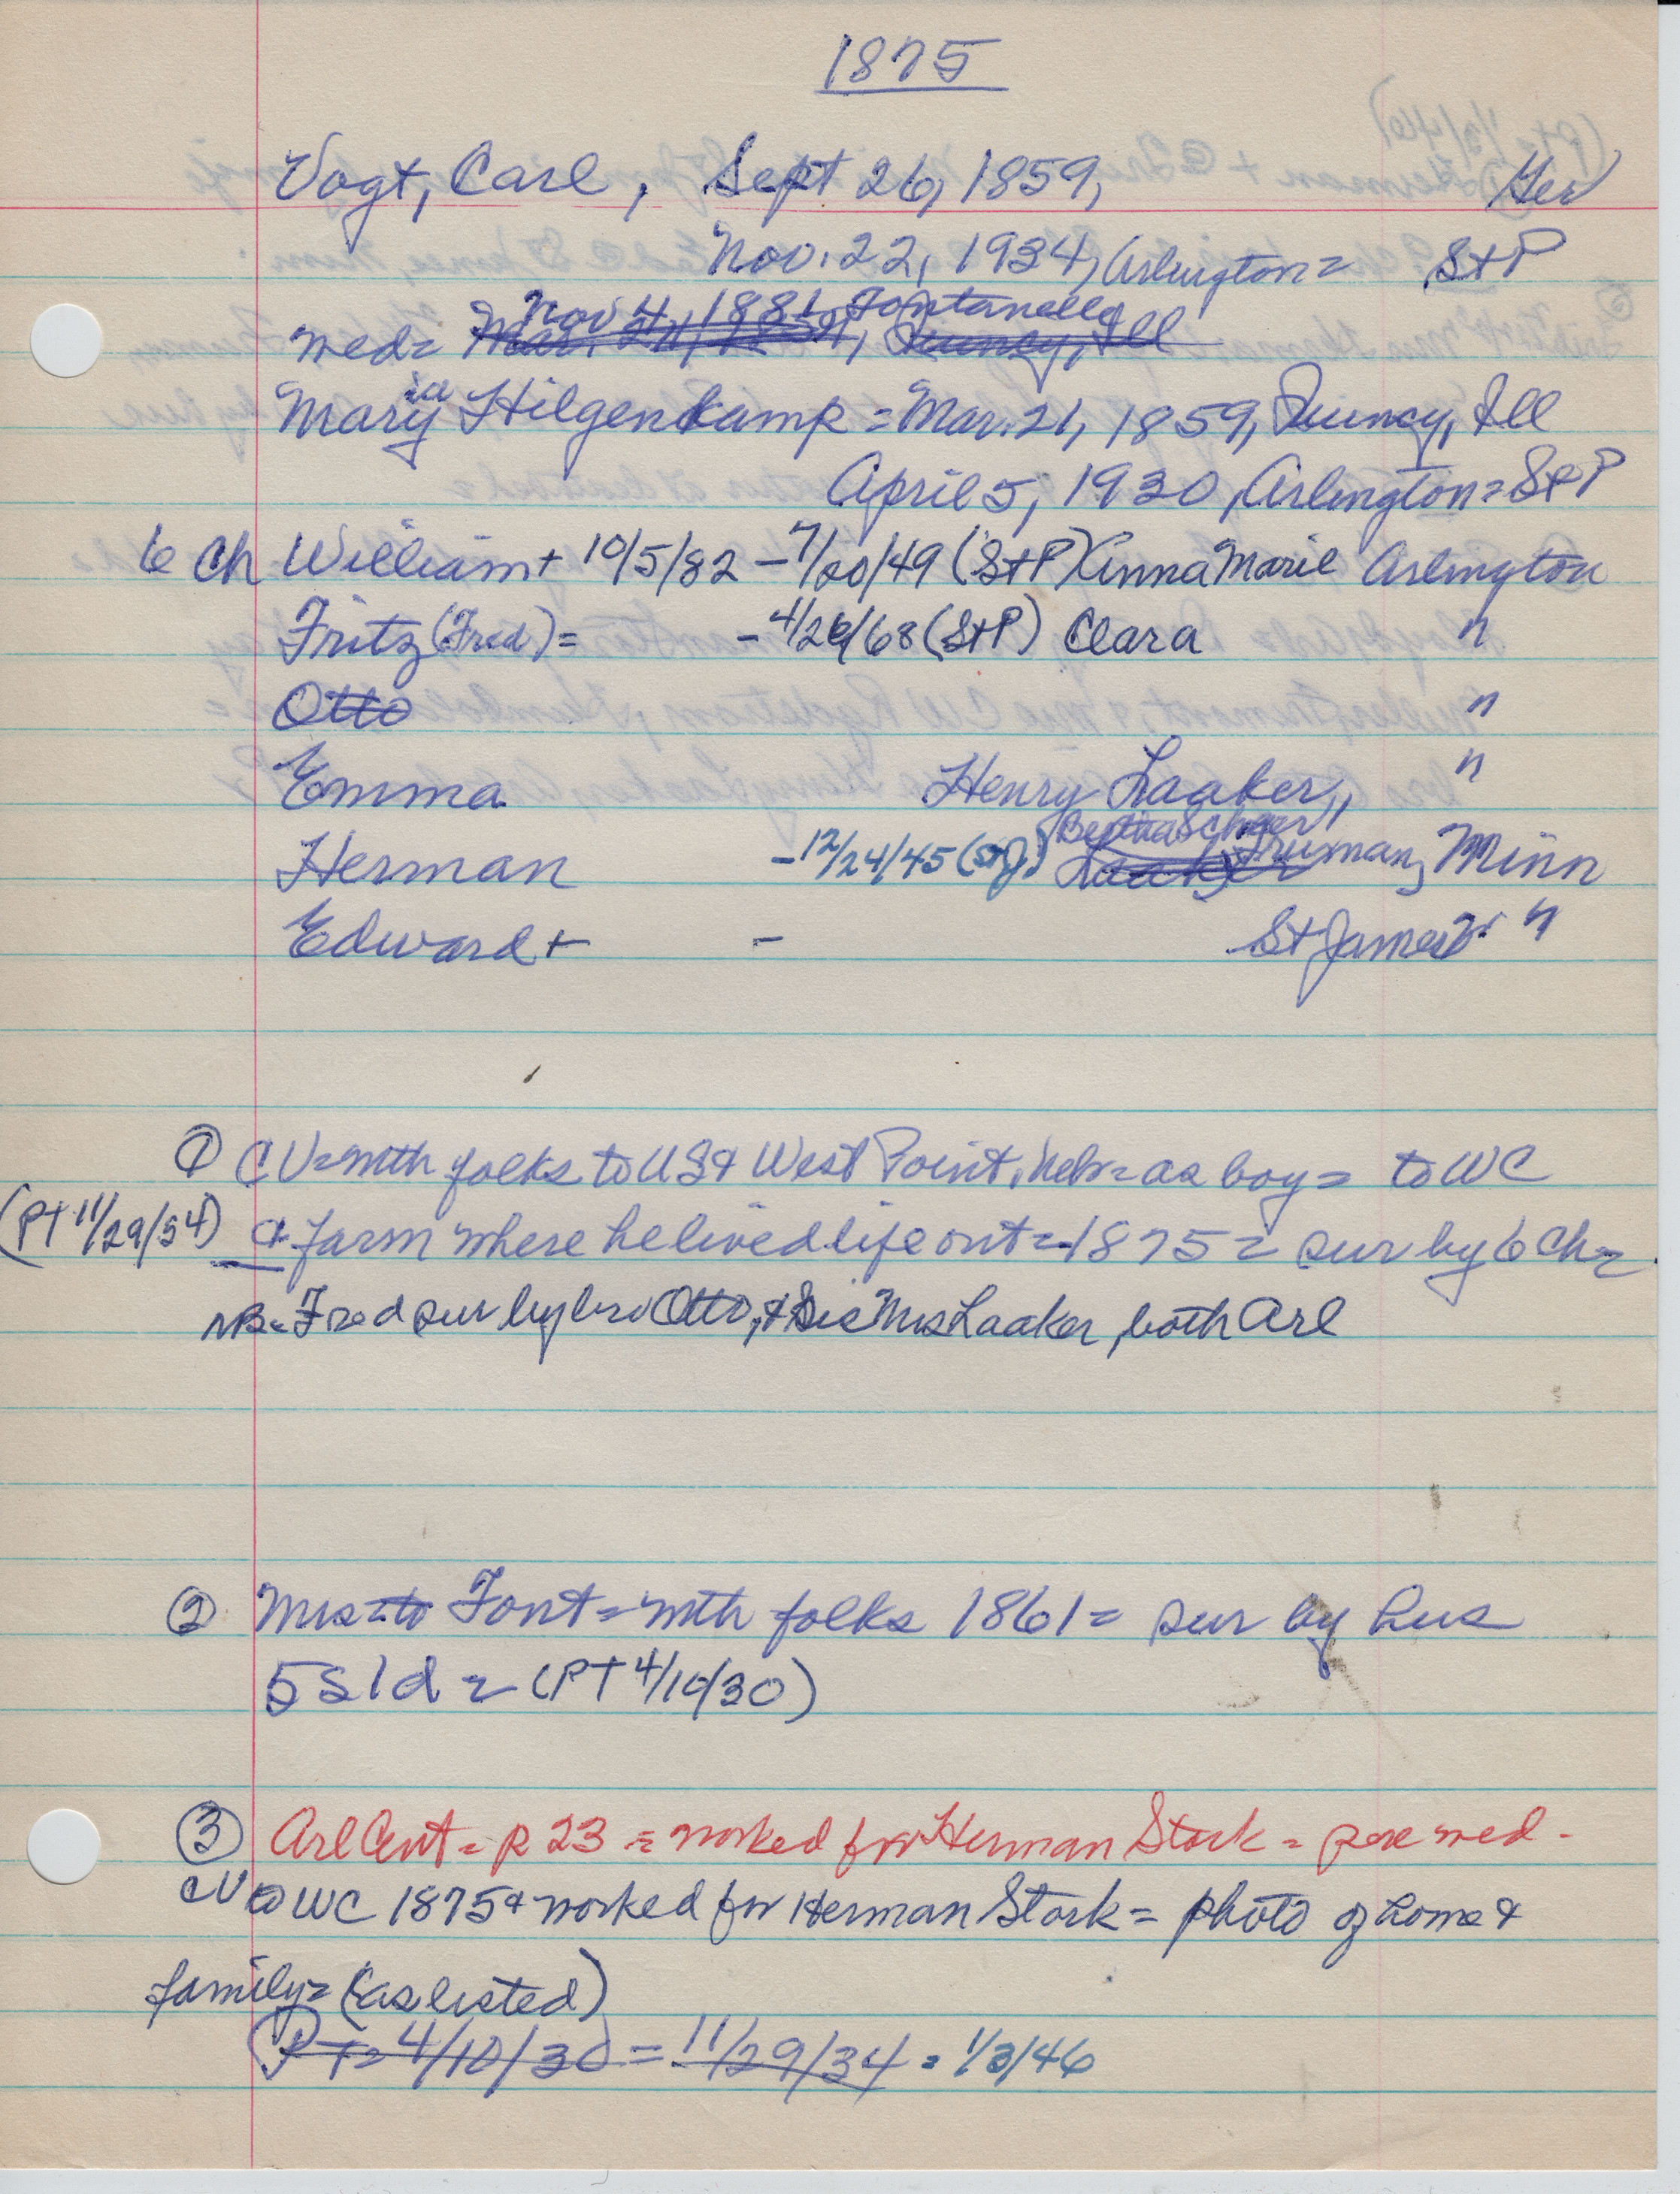 1875
Vogt, Carl, Sept 26, 1859, Ger
Nov. 22, 1934, Arlington = St P
Nov 4, 1881, Fontanelle
wed = Mar. 21, Quincy, Ill
Maryia Hilgenkamp = Mar. 21, 1859, Quincy, Ill
April 5, 1930, Arlington = St P
6 Ch William + 10/5/82 - 7/20/49 (St P) Anna Marie Arlington
Fritz (Fred) = - 4/26/68 (St P) Clara "
Otto "
Emma Henry Laaker, "
Bertha Scheer,
Herman - 12/24/45 (St J) Laaker Truman, Minn
Edward + - St James "
① CV = with folks to US & West Point, Nebr = as boy = to WC
(PT 11/29/34) & farm where he lived life out = 1875 = sur by 6 Ch =
NB = Fred sur by bro Otto, & Sis Mrs Laaker, both Arl
② Mrs = to Font = with folks 1861 = sur by hus
5s 1d = (PT 4/10/30)
③ Arl Cent = p 23 = worked for Herman Stork = wed -
CV to WC 1875 & worked for Herman Stork = photo of home &
family = (as listed)
PT = 4/10/30 = 11/29/34 = 1/3/46